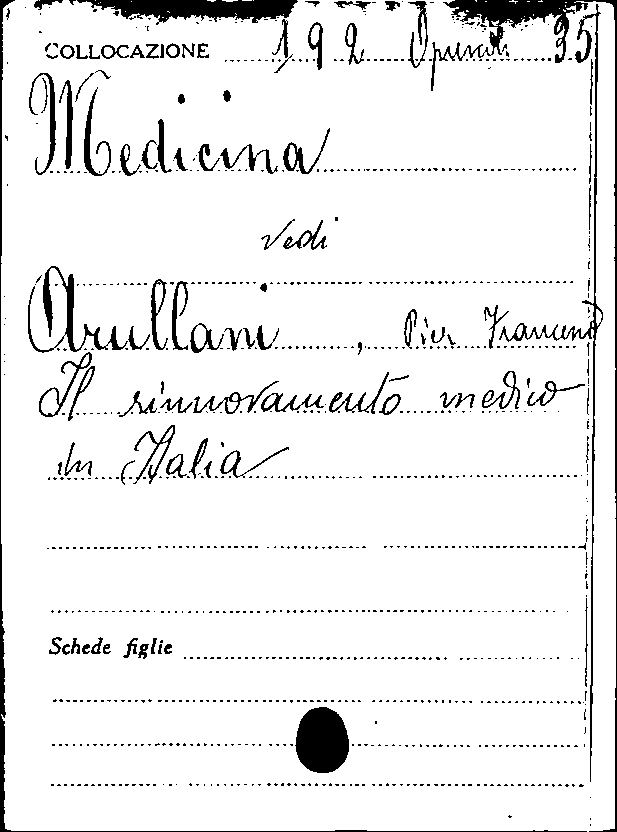 COLLOCAZIONE 192 Opuscoli 35
Medicina
Vedi
Arullani, Pier Francesco
Il rinnovamento medico
in Italia
Schede figlie